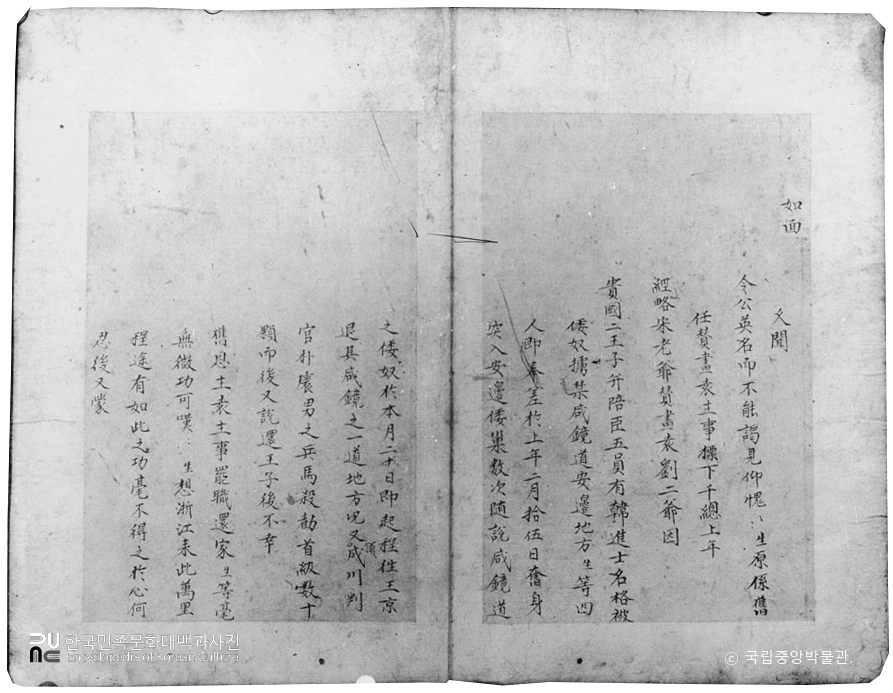 如面
久聞
令公英名而不能謁見仰愧〻生原係舊
任贊畫袁主事標下千總上年
經略宋老爺贊畫袁劉二爺因
貴國二王子并陪臣五員有韓進士名格被
倭奴擄禁咸鏡道安邊地方生等四
人即奉差於上年二月拾伍日奮身
突入安邊倭巢數次随說咸鏡道
之倭奴於本月二十日即起程往王京
退其咸鏡之一道地方児又咸川判
頂
官朴震男之兵馬殺勦首級數十
顆而後又說還王子後不幸
舊恩主袁主事罷職還家生等毫
無微功可嘆〻生想浙江来此萬里
程途有如此之功毫不得之於心何
忍後又蒙
한국민족문화대백과사전
Encyclopedia of Korean Culture
© 국립중앙박물관